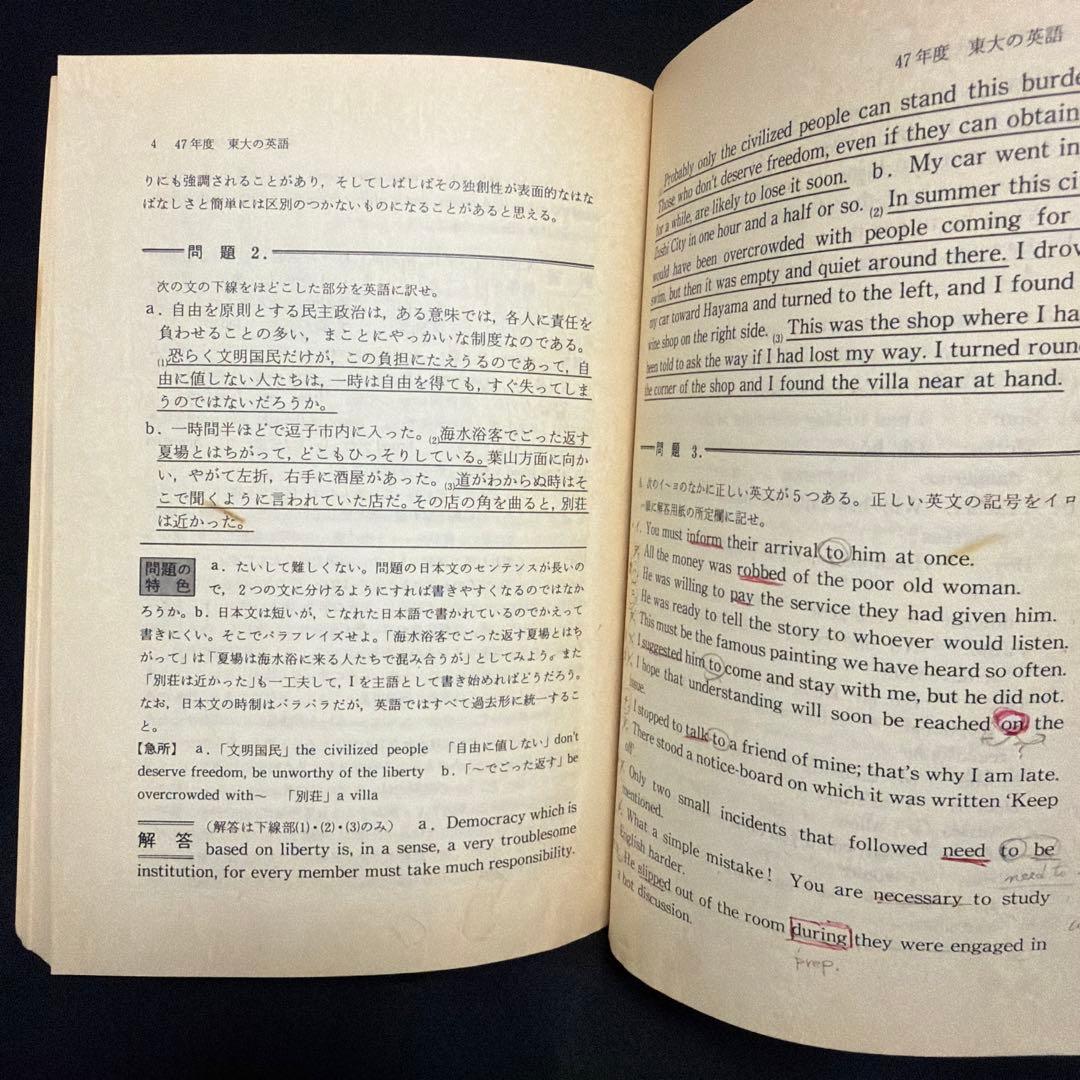 4 47年度 東大の英語
りにも強調されることがあり，そしてしばしばその独創性が表面的なはな
ばなしさと簡単には区別のつかないものになることがあると思える。
問 題 2．
次の文の下線をほどこした部分を英語に訳せ。
a．自由を原則とする民主政治は，ある意味では，各人に責任を
負わせることの多い，まことにやっかいな制度なのである。
(1)恐らく文明国民だけが，この負担にたえうるのであって，自
由に値しない人たちは，一時は自由を得ても，すぐ失ってしま
うのではないだろうか。
b．一時間半ほどで逗子市内に入った。(2)海水浴客でごった返す
夏場とはちがって，どこもひっそりしている。葉山方面に向か
い，やがて左折，右手に酒屋があった。(3)道がわからぬ時はそ
こで聞くように言われていた店だ。その店の角を曲ると，別荘
は近かった。
問題の特色 a．たいして難しくない。問題の日本文のセンテンスが長いの
で，2つの文に分けるようにすれば書きやすくなるのではなか
ろうか。b．日本文は短いが，こなれた日本語で書かれているのでかえって
書きにくい。そこでパラフレイズせよ。「海水浴客でごった返す夏場とはち
がって」は「夏場は海水浴に来る人たちで混み合うが」としてみよう。また
「別荘は近かった」も一工夫して，Iを主語として書き始めればどうだろう。
なお，日本文の時制はバラバラだが，英語ではすべて過去形に統一するこ
と。
【急所】 a．「文明国民」the civilized people 「自由に値しない」don't
deserve freedom, be unworthy of the liberty b．「〜でごった返す」be
overcrowded with〜 「別荘」a villa
解 答 （解答は下線部(1)・(2)・(3)のみ） a．Democracy which is
based on liberty is, in a sense, a very troublesome
institution, for every member must take much responsibility.
47年度 東大の英語
Probably only the civilized people can stand this burde
Those who don't deserve freedom, even if they can obtain
for a while, are likely to lose it soon. b．My car went in
Zushi City in one hour and a half or so. (2)In summer this ci
would have been overcrowded with people coming for
swim, but then it was empty and quiet around there. I drov
my car toward Hayama and turned to the left, and I found
wine shop on the right side. (3)This was the shop where I ha
been told to ask the way if I had lost my way. I turned roun
the corner of the shop and I found the villa near at hand.
問 題 3．
次のイ〜ヨのなかに正しい英文が5つある。正しい英文の記号をイロ
順に解答用紙の所定欄に記せ。
イ．You must inform their arrival to him at once.
All the money was robbed of the poor old woman.
He was willing to pay the service they had given him.
He was ready to tell the story to whoever would listen.
This must be the famous painting we have heard so often.
I suggested him to come and stay with me, but he did not.
I hope that understanding will soon be reached on the
issue.
I stopped to talk to a friend of mine; that's why I am late.
There stood a notice-board on which it was written 'Keep
off'
Only two small incidents that followed need to be
mentioned.
need to
What a simple mistake! You are necessary to study
English harder.
He slipped out of the room during they were engaged in
a hot discussion.
prep.